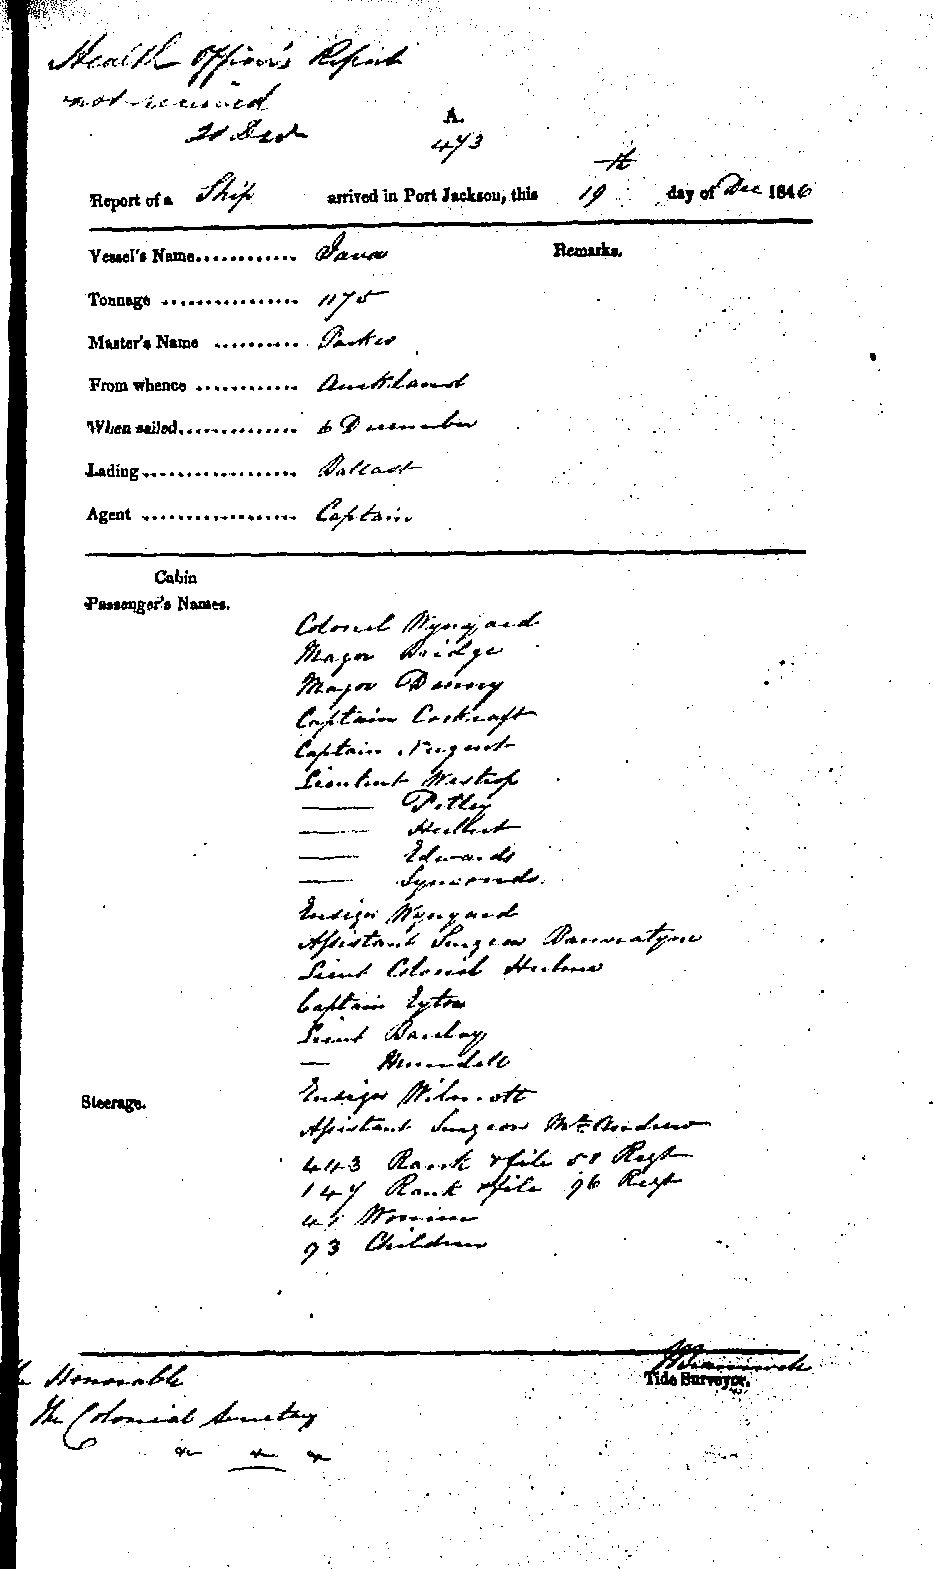 Health Officer's Report
not received
21 Decr
A.
473
Report of a Ship arrived in Port Jackson, this 19th day of Dec 1846
Vessel's Name............ Java
Remarks.
Tonnage ............... 1175
Master's Name .......... Parker
From whence ............ Auckland
When sailed.............. 6 December
Lading.................. Ballast
Agent .................. Captain
Cabin
Passenger's Names.
Colonel Wynyard
Major Bridge
Major Denny
Captain Cockcraft
Captain Nugent
Lieutent Westrop
—— Petley
—— Hulbert
—— Edwards
—— Symonds
Ensign Wynyard
Assistant Surgeon Bannatyne
Lieut Colonel Hulme
Captain Eyton
Lieut Barclay
—
Ensign Wilmott
Steerage.
Assistant Surgeon McAndrew
443 Rank & file 58 Regt
147 Rank & file 96 Regt
41 Women
93 Children
Tide Surveyor.
The Honorable
The Colonial Secretary